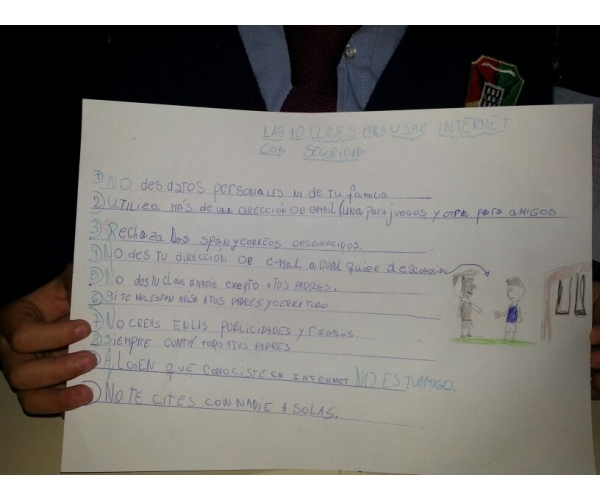 LAS 10 CLAVES PARA USAR INTERNET
CON SEGURIDAD
1) NO des datos personales ni de tu familia
2) Utiliza más de una dirección de email (una para juegos y otra para amigos
3) Rechaza los span y correos desconocidos.
4) No des tu dirección de e-mail a cual quier desconocido
5) No des tu clave a nadie exepto a tus padres.
6) Si te molestan avisa a tus padres y cerra todo
7) No creas en las publicidades y regalos
8) Siempre contá todo a tus padres
9) Algien que conociste en internet NO ES TU AMIGO.
No te cites con nadie a solas.